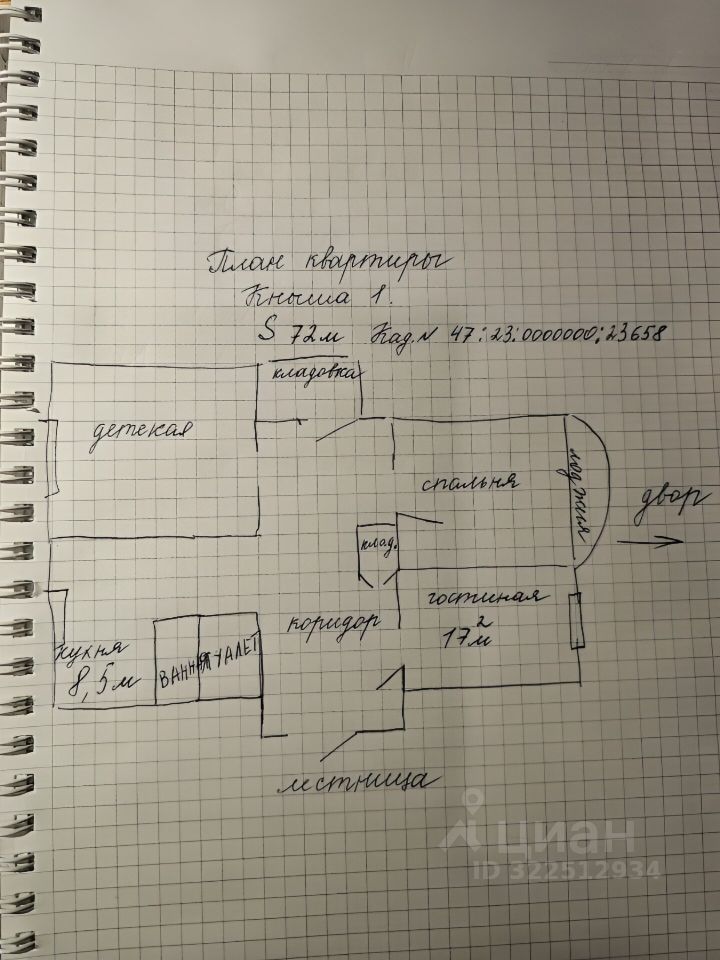 План квартиры
Кныша 1.
S 72м Кад.N 47:23:0000000:23658
кладовка
детская
спальня
лоджия
двор
клад.
гостиная
17м²
коридор
кухня
8,5м
ВАННАЯ
ТУАЛЕТ
лестница
циан
ID 322512934